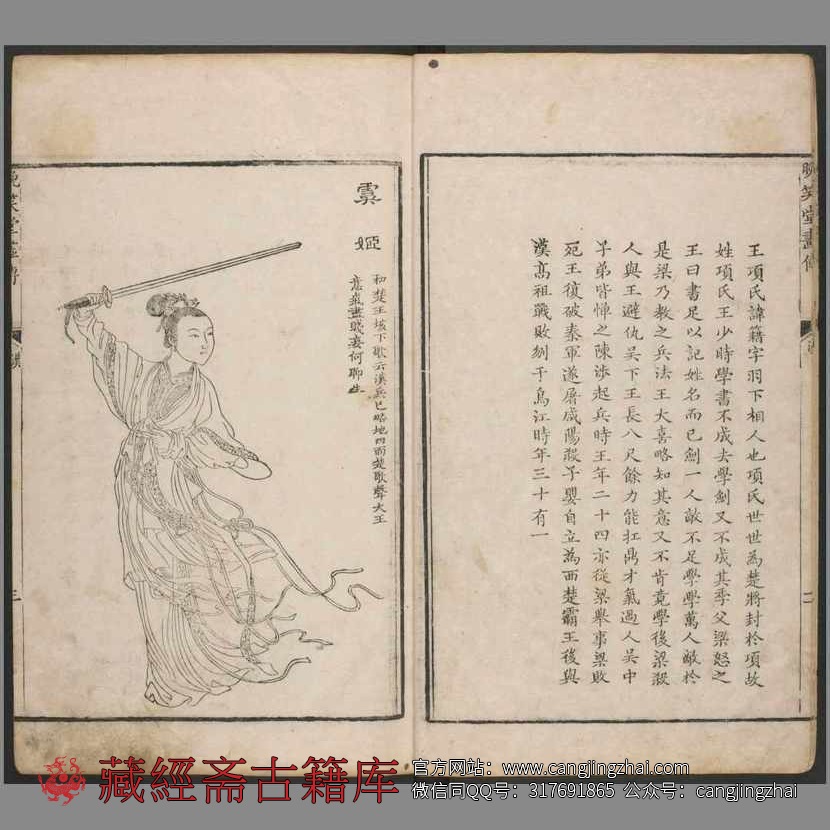 晚笑堂畫傳
漢
二
王項氏諱籍字羽下相人也項氏世世為楚將封於項故
姓項氏王少時學書不成去學劍又不成其季父梁怒之
王曰書足以記姓名而已劍一人敵不足學學萬人敵於
是梁乃教之兵法王大喜略知其意又不肯竟學後梁殺
人與王避仇吳下王長八尺餘力能扛鼎才氣過人吳中
子弟皆憚之陳涉起兵時王年二十四亦從梁舉事梁敗
死王復破秦軍遂屠咸陽殺子嬰自立為西楚霸王後與
漢高祖戰敗刎于烏江時年三十有一
虞姬
和楚王垓下歌云漢兵已略地四面楚歌聲大王
意氣盡賤妾何聊生
晚笑堂畫傳
漢
三
藏經斋古籍库
官方网站：www.cangjingzhai.com
微信同QQ号：317691865 公众号：cangjingzhai